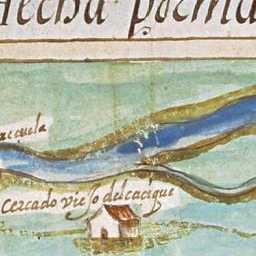 Hecha por ma
ze cuela
cercado viejo del cacique